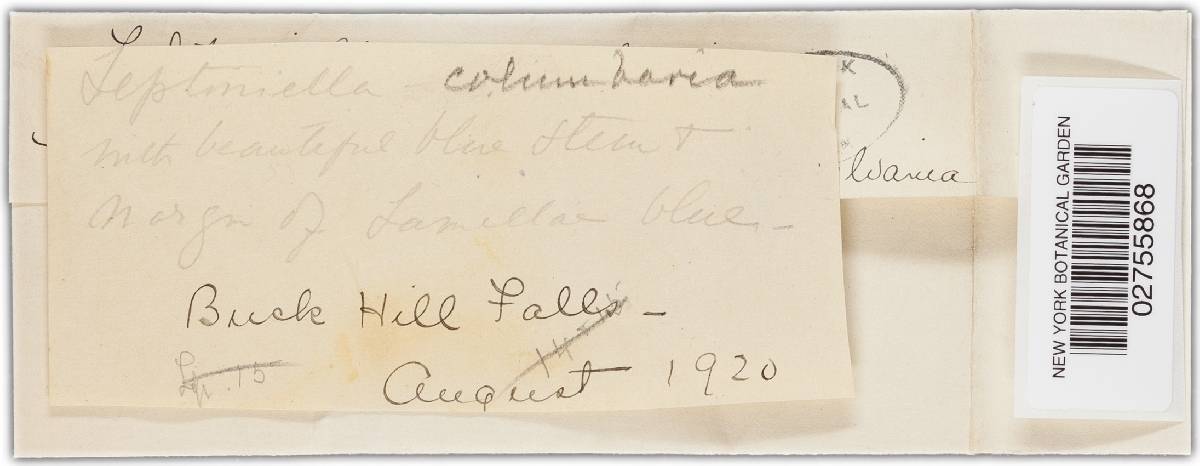 Leptoniella columbaria
with beautiful blue stem &
margin of Lamellae blue –
Buck Hill Falls –
August 1920
lvania
NEW YORK BOTANICAL GARDEN
02755868